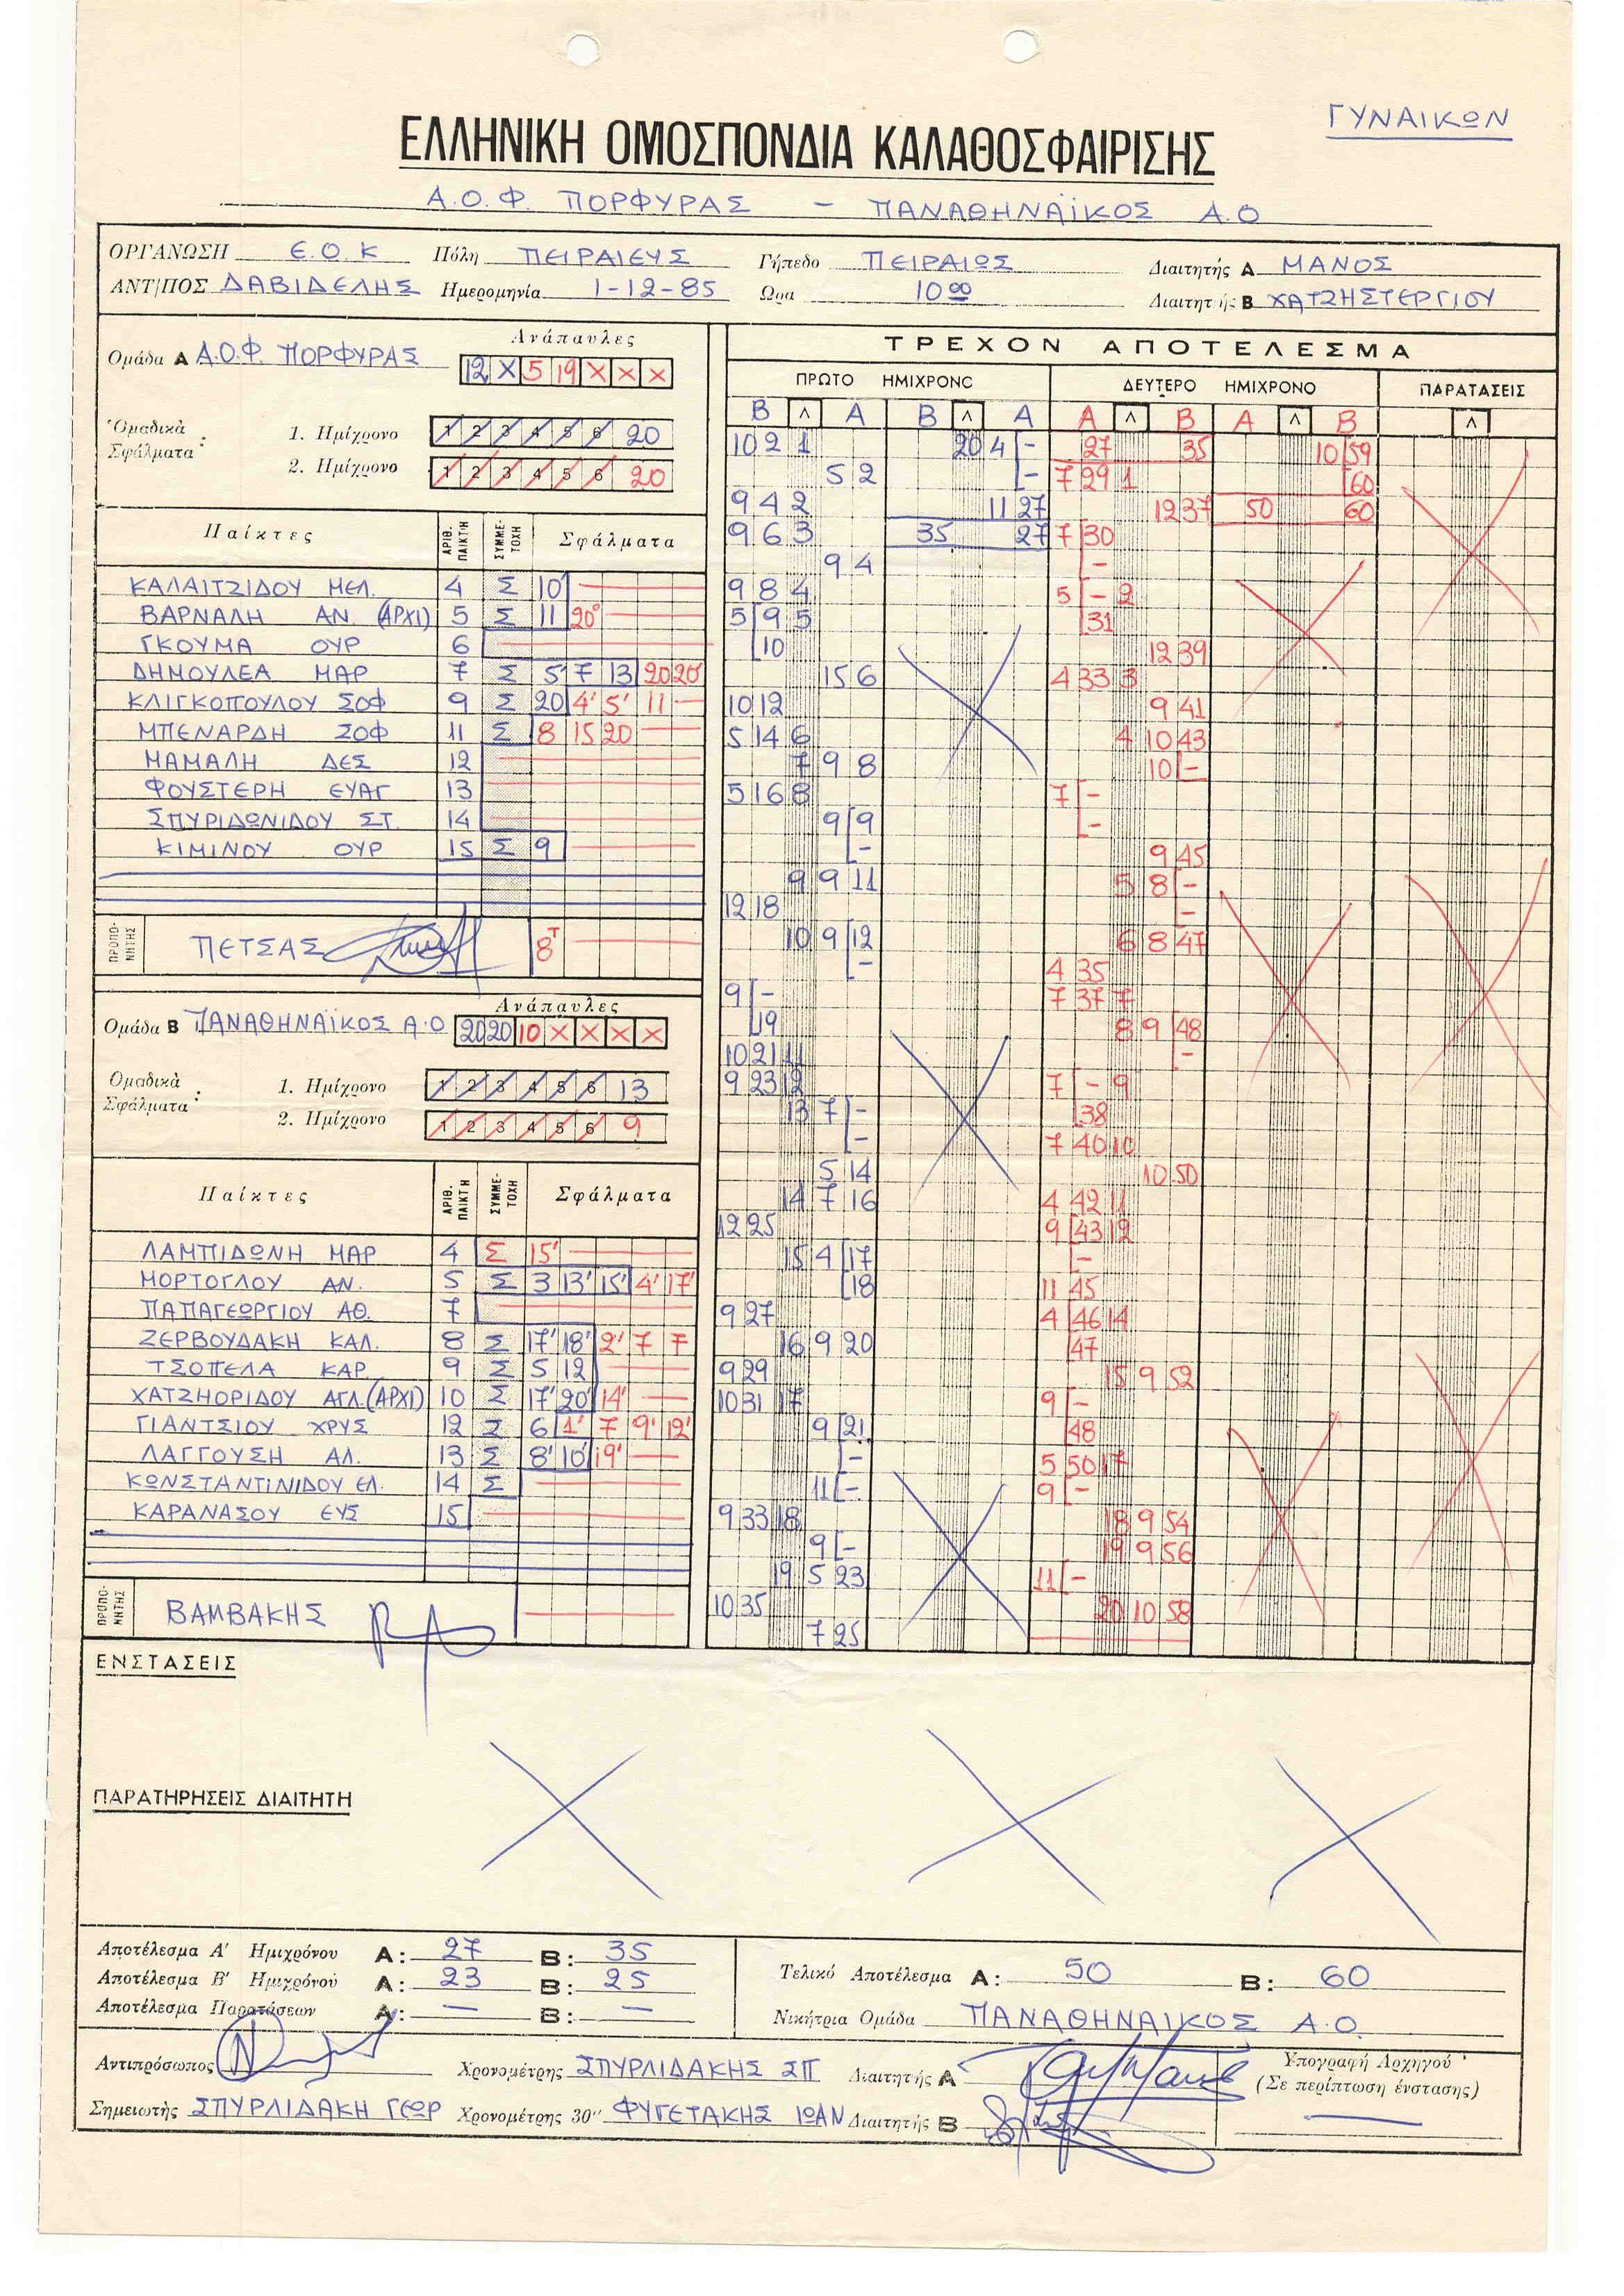 ΓΥΝΑΙΚΩΝ
ΕΛΛΗΝΙΚΗ ΟΜΟΣΠΟΝΔΙΑ ΚΑΛΑΘΟΣΦΑΙΡΙΣΗΣ
Α.Ο.Φ. ΠΟΡΦΥΡΑΣ – ΠΑΝΑΘΗΝΑΪΚΟΣ Α.Ο
ΟΡΓΑΝΩΣΗ Ε.Ο.Κ Πόλη ΠΕΙΡΑΙΕΥΣ Γήπεδο ΠΕΙΡΑΙΩΣ Διαιτητής Α ΜΑΝΟΣ
ΑΝΤ/ΠΟΣ ΔΑΒΙΔΕΛΗΣ Ημερομηνία 1-12-85 Ωρα 10 00 Διαιτητής Β ΧΑΤΖΗΣΤΕΡΓΙΟΥ
Ανάπαυλες
Ομάδα Α Α.Ο.Φ. ΠΟΡΦΥΡΑΣ 12 X 5 19 X X X
Ομαδικὰ Σφάλματα :
1. Ημίχρονο 1 2 3 4 5 6 20
2. Ημίχρονο 1 2 3 4 5 6 20
Παίκτες ΑΡΙΘ. ΠΑΙΚΤΗ ΣΥΜΜΕΤΟΧΗ Σφάλματα
ΚΑΛΑΙΤΖΙΔΟΥ ΜΕΛ. 4 Σ 10'
ΒΑΡΝΑΛΗ ΑΝ. (ΑΡΧΙ) 5 Σ 11 20'
ΓΚΟΥΜΑ ΟΥΡ 6
ΔΗΜΟΥΛΕΑ ΜΑΡ 7 Σ 5' 7 13 20 20'
ΚΛΙΓΚΟΠΟΥΛΟΥ ΣΟΦ 9 Σ 20 4' 5' 11
ΜΠΕΝΑΡΔΗ ΣΟΦ 11 Σ 8 15 20
ΜΑΜΑΛΗ ΔΕΣ 12
ΦΟΥΣΤΕΡΗ ΕΥΑΓ 13
ΣΠΥΡΙΔΩΝΙΔΟΥ ΣΤ. 14
ΚΙΜΙΝΟΥ ΟΥΡ 15 Σ 9
ΠΡΟΠΟΝΗΤΗΣ ΠΕΤΣΑΣ 8Τ
Ανάπαυλες
Ομάδα Β ΠΑΝΑΘΗΝΑΪΚΟΣ Α.Ο 20 20 10 X X X X
Ομαδικὰ Σφάλματα :
1. Ημίχρονο 1 2 3 4 5 6 13
2. Ημίχρονο 1 2 3 4 5 6 9
Παίκτες ΑΡΙΘ. ΠΑΙΚΤΗ ΣΥΜΜΕΤΟΧΗ Σφάλματα
ΛΑΜΠΙΔΩΝΗ ΜΑΡ 4 Σ 15'
ΜΟΡΤΟΓΛΟΥ ΑΝ. 5 Σ 3 13' 15' 4' 17'
ΠΑΠΑΓΕΩΡΓΙΟΥ ΑΘ. 7
ΖΕΡΒΟΥΔΑΚΗ ΚΑΛ. 8 Σ 17' 18' 2' 7 7
ΤΣΟΠΕΛΑ ΚΑΡ 9 Σ 5 12
ΧΑΤΖΗΟΡΙΔΟΥ ΑΓΛ.(ΑΡΧΙ) 10 Σ 17' 20' 14'
ΓΙΑΝΤΣΙΟΥ ΧΡΥΣ 12 Σ 6 1' 7 9' 12'
ΛΑΓΓΟΥΣΗ ΑΛ. 13 Σ 8' 10' 19'
ΚΩΝΣΤΑΝΤΙΝΙΔΟΥ ΕΛ. 14 Σ
ΚΑΡΑΝΑΣΟΥ ΕΥΣ 15
ΠΡΟΠΟΝΗΤΗΣ ΒΑΜΒΑΚΗΣ
ΤΡΕΧΟΝ ΑΠΟΤΕΛΕΣΜΑ
ΠΡΩΤΟ ΗΜΙΧΡΟΝΟ ΔΕΥΤΕΡΟ ΗΜΙΧΡΟΝΟ ΠΑΡΑΤΑΣΕΙΣ
Β Λ Α Β Λ Α Α Λ Β Α Λ Β Λ
10 2 1 20 4 - 27 35 10 59
5 2 - 7 29 1 60
9 4 2 11 27 12 37 50 60
9 6 3 35 27 7 30
9 4 -
9 8 4 5 - 2
5 9 5 31
10 12 39
15 6 4 33 3
10 12 9 41
5 14 6 4 10 43
7 9 8 10 -
5 16 8 7 -
9 9 -
- 9 45
9 9 11 5 8 -
12 18 -
10 9 12 6 8 47
- 4 35
9 - 7 37 7
19 8 9 48
10 21 11 -
9 23 12 7 - 9
13 7 - 38
- 7 40 10
5 14 10 50
14 7 16 4 42 11
12 25 9 43 12
15 4 17 -
18 11 45
9 27 4 46 14
16 9 20 47
9 29 15 9 52
10 31 17 9 -
9 21 48
- 5 50 17
11 - 9 -
9 33 18 18 9 54
9 - 19 9 56
19 5 23 11 -
10 35 20 10 58
7 25
ΕΝΣΤΑΣΕΙΣ
ΠΑΡΑΤΗΡΗΣΕΙΣ ΔΙΑΙΤΗΤΗ
Αποτέλεσμα Α' Ημιχρόνου Α: 27 Β: 35
Αποτέλεσμα Β' Ημιχρόνου Α: 23 Β: 25
Αποτέλεσμα Παρατάσεων Α: — Β: —
Τελικό Αποτέλεσμα Α: 50 Β: 60
Νικήτρια Ομάδα ΠΑΝΑΘΗΝΑΙΚΟΣ Α.Ο.
Αντιπρόσωπος Χρονομέτρης ΣΠΥΡΛΙΔΑΚΗΣ ΣΠ Διαιτητής Α Υπογραφή Αρχηγού
(Σε περίπτωση ένστασης)
Σημειωτής ΣΠΥΡΛΙΔΑΚΗ ΓΕΩΡ Χρονομέτρης 30'' ΦΥΓΕΤΑΚΗΣ ΙΩΑΝ Διαιτητής Β